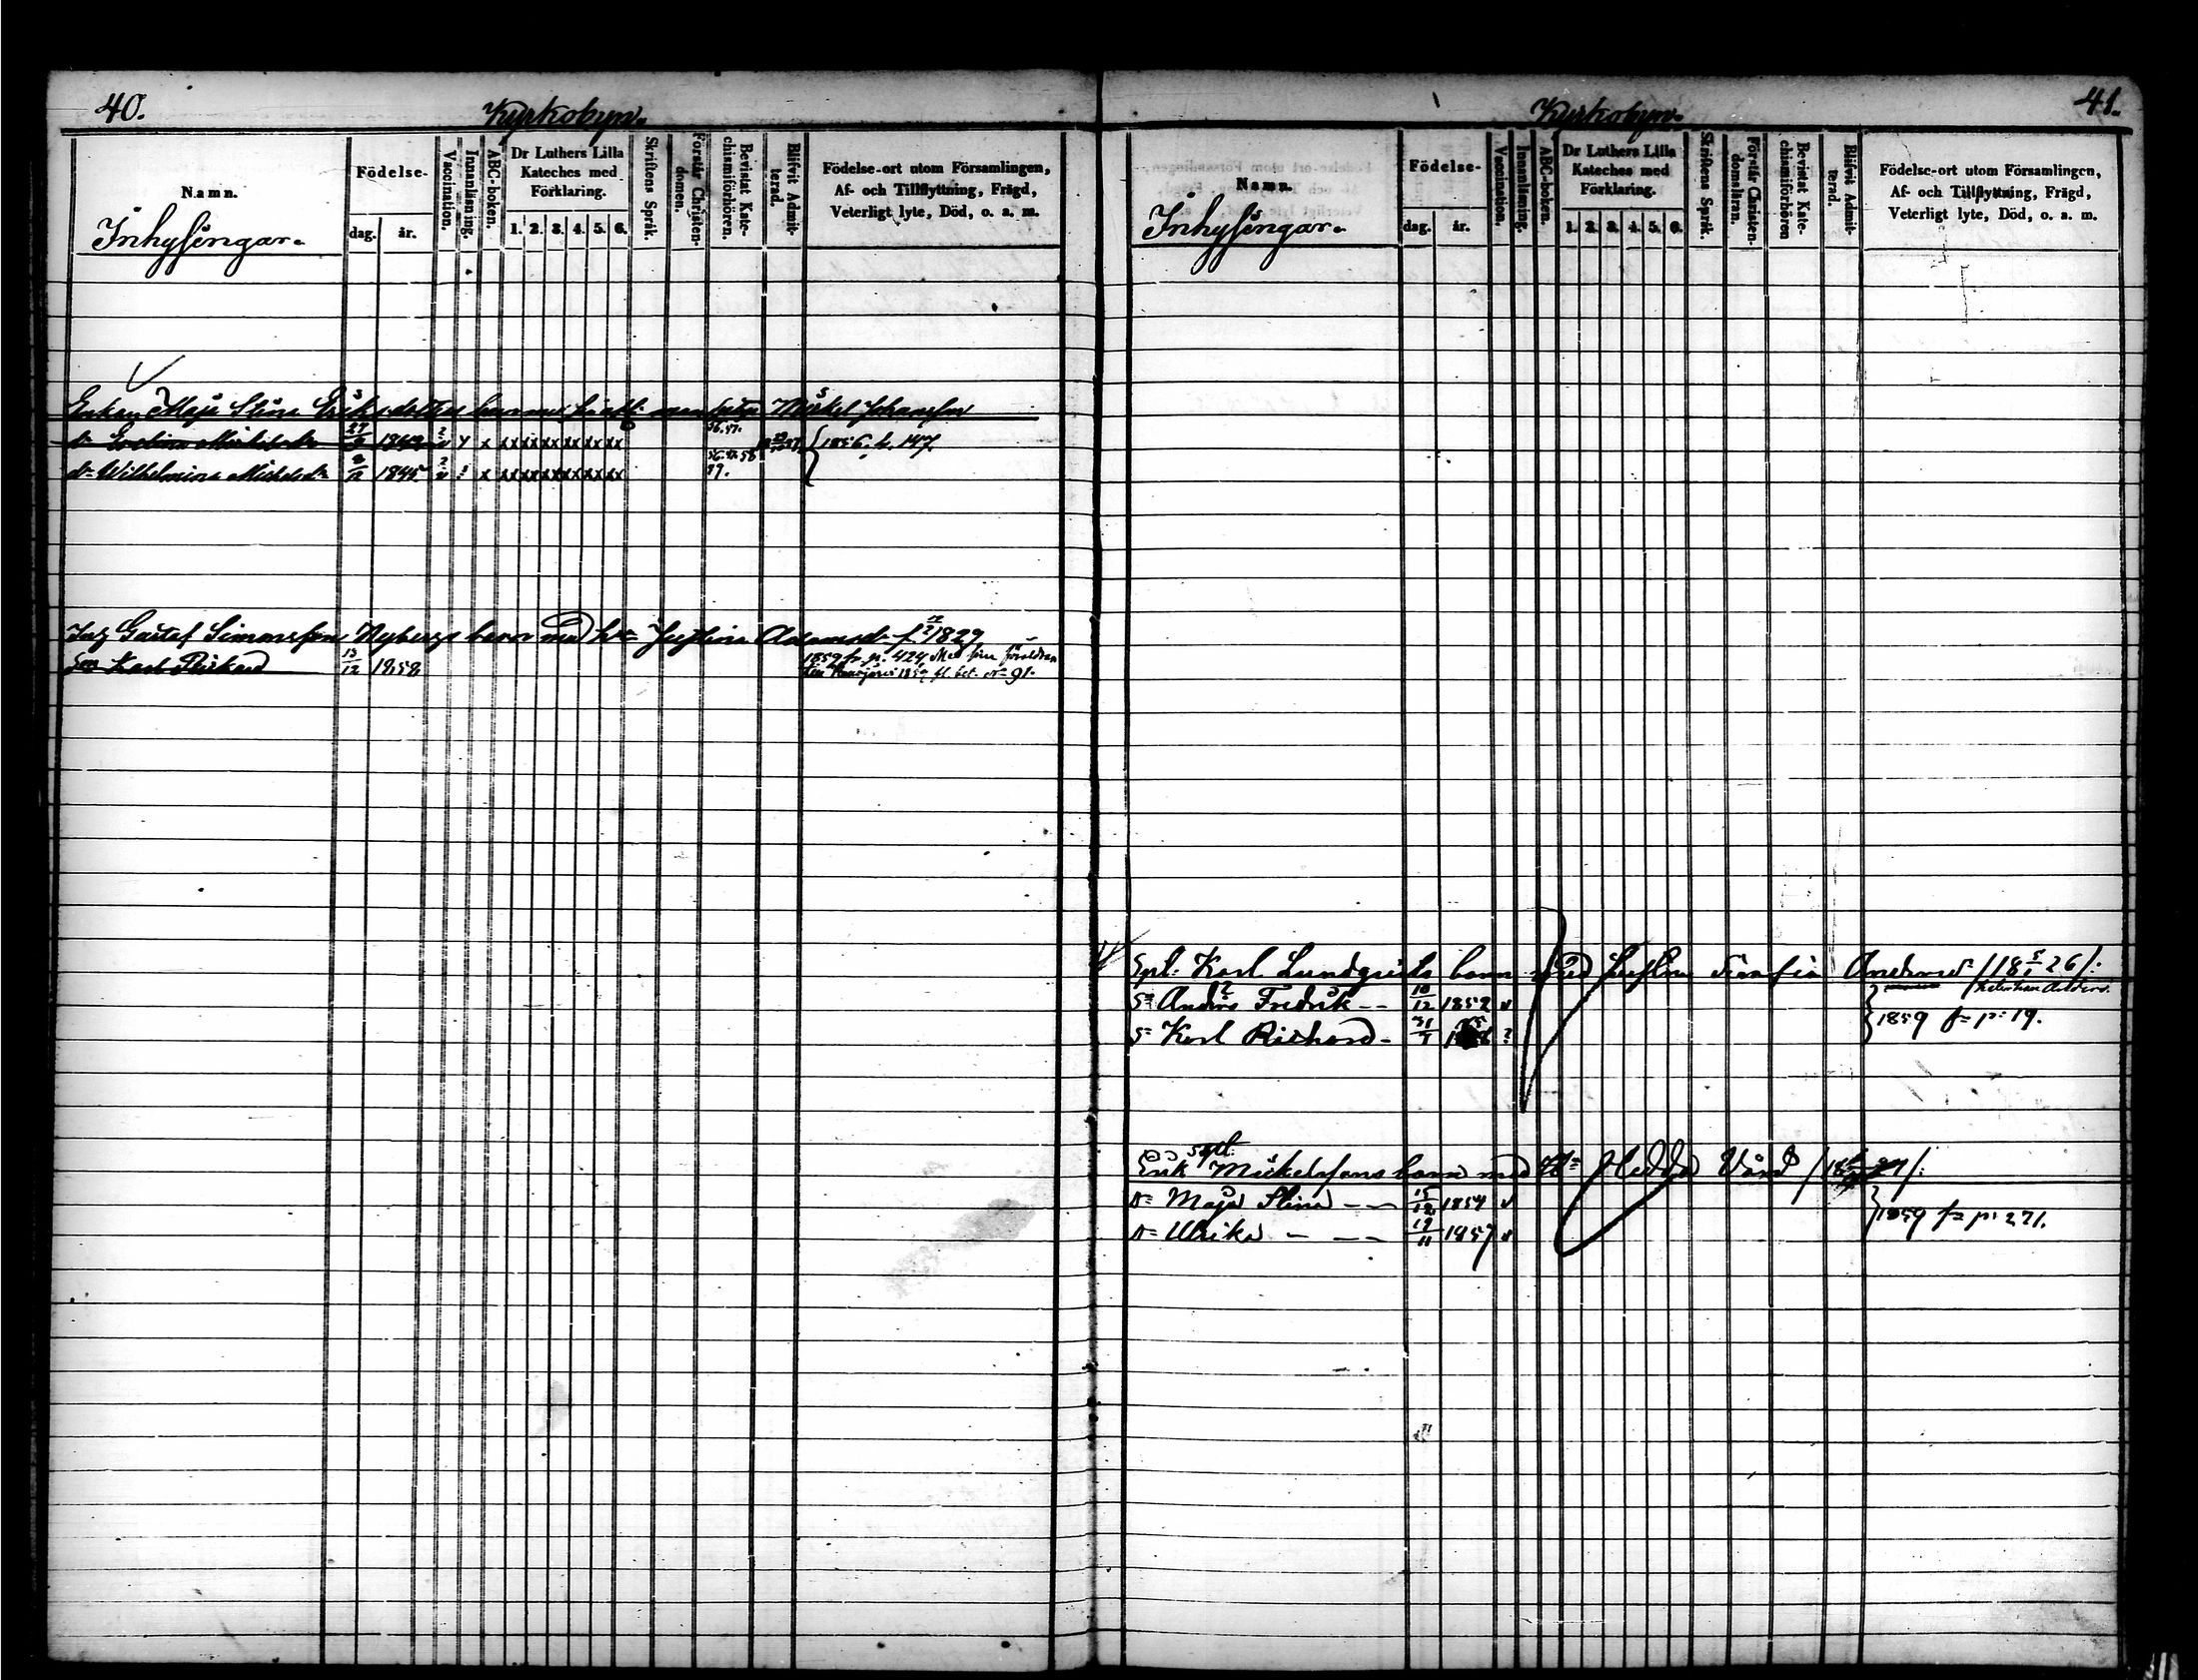 40.
Kyrkobyn.
Namn.
Inhysingar.
Födelse-
dag.
år.
Vaccination.
Innanläsning.
ABC-boken.
Dr Luthers Lilla
Kateches med
Förklaring.
1. 2. 3. 4. 5. 6.
Skriftens Språk.
Förstår Christen-
domen.
Bevistat Kate-
chismiförhören.
Blifvit Admit-
terad.
Födelse-ort utom Församlingen,
Af- och Tillflyttning, Frägd,
Veterligt lyte, Död, o. a. m.
Enkan Maja Stina Eriksdotters barn med Mickel Johansson
dr 27/6 v x xxxxxxxxxxxx 56.57. 1856. fr. 147.
dr Wilhelmina Mickelsdr 1845 v x xxxxxxxxxxxx 56.57.58 59.
Inh Gustaf Simonsson Nybergs barn med hu Justina Adamsdr f. 1829
Son Karl Rickard 13/12 1858 1859 fr. p. 424, Med sina föräldrar
till 1859 fl. bet. No 91.
41.
Kyrkobyn.
Namn.
Inhysingar.
Födelse-
dag.
år.
Vaccination.
Innanläsning.
ABC-boken.
Dr Luthers Lilla
Kateches med
Förklaring.
1. 2. 3. 4. 5. 6.
Skriftens Språk.
Förstår Christen-
domsläran.
Bevistat Kate-
chismiförhören
Blifvit Admit-
terad.
Födelse-ort utom Församlingen,
Af- och Tillflyttning, Frägd,
Veterligt lyte, Död, o. a. m.
Spl. Karl Lundqvists barn med hustru Serafia Andersdr /18 5/1 26/:
S= Anders Fredrik -- 10/12 1852 v
S= Karl Richard - ? 1859 fr p: 19.
Spl.
Erik Mickelssons barn med H= Hedda Vård
D= Maja Stina -- 15/12 1854 v
D= Ulrika - -- 19/11 1857 v 1859 fr p: 271.